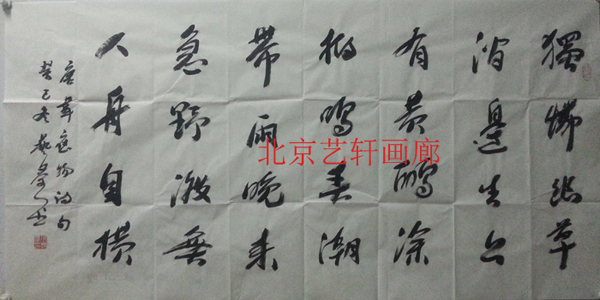 獨憐幽草
澗邊生上
有黄鸝深
樹鳴春潮
帶雨晚来
急野渡無
人舟自横
唐韋應物詩句
癸巳冬
北京艺轩画廊